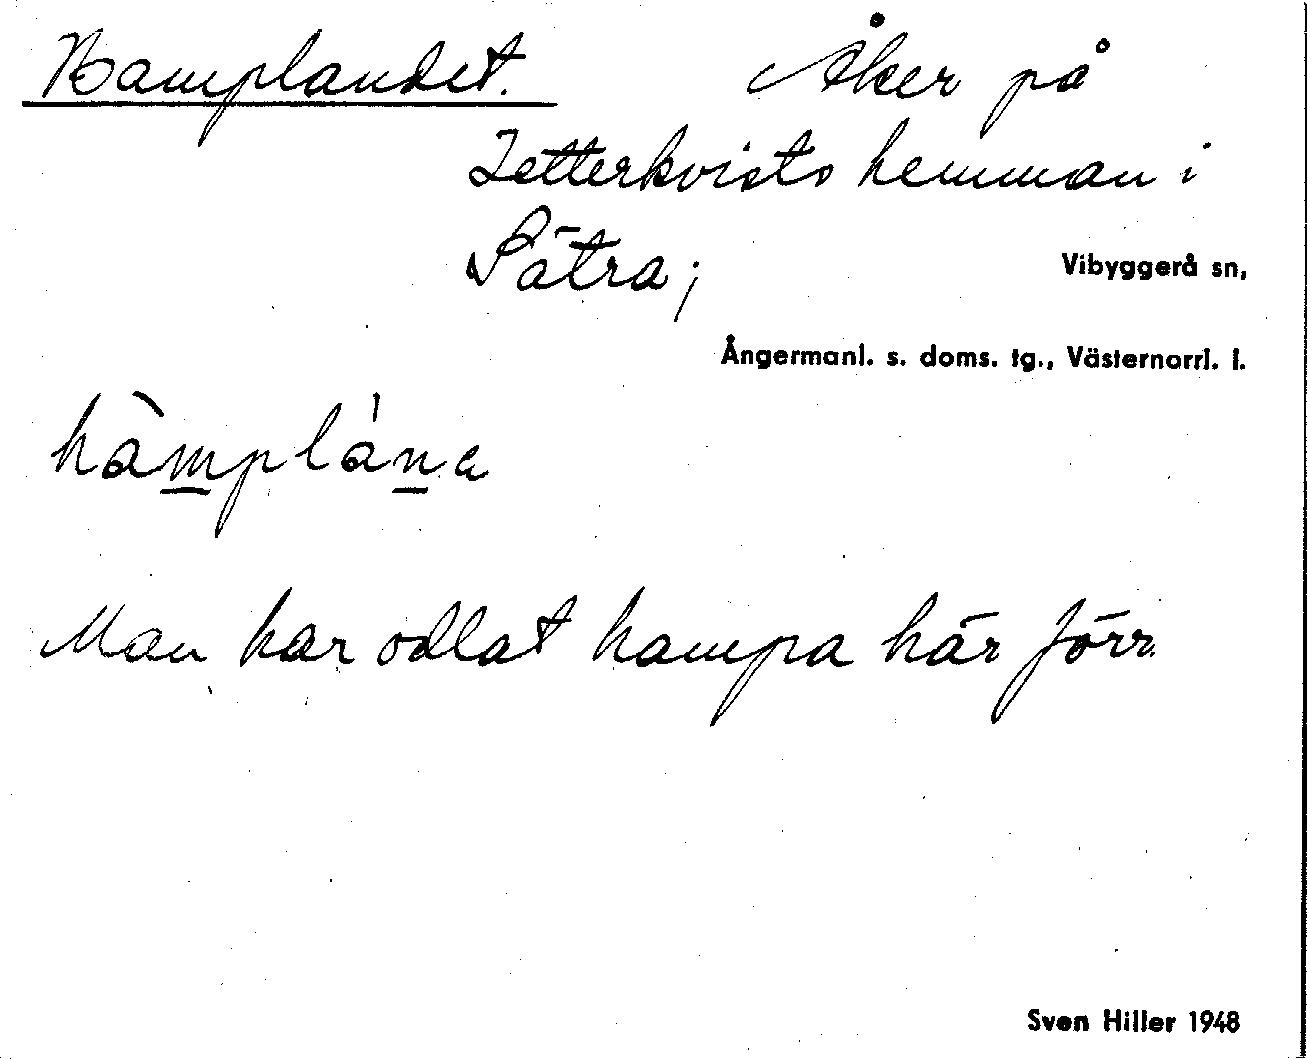 Hamplandet. Åker på
Zetterkvists hemman i
Sätra;
Vibyggerå sn,
Ångermanl. s. doms. tg., Västernorrl. l.
hàmplána
Man har odlat hampa här förr.
Sven Hiller 1948